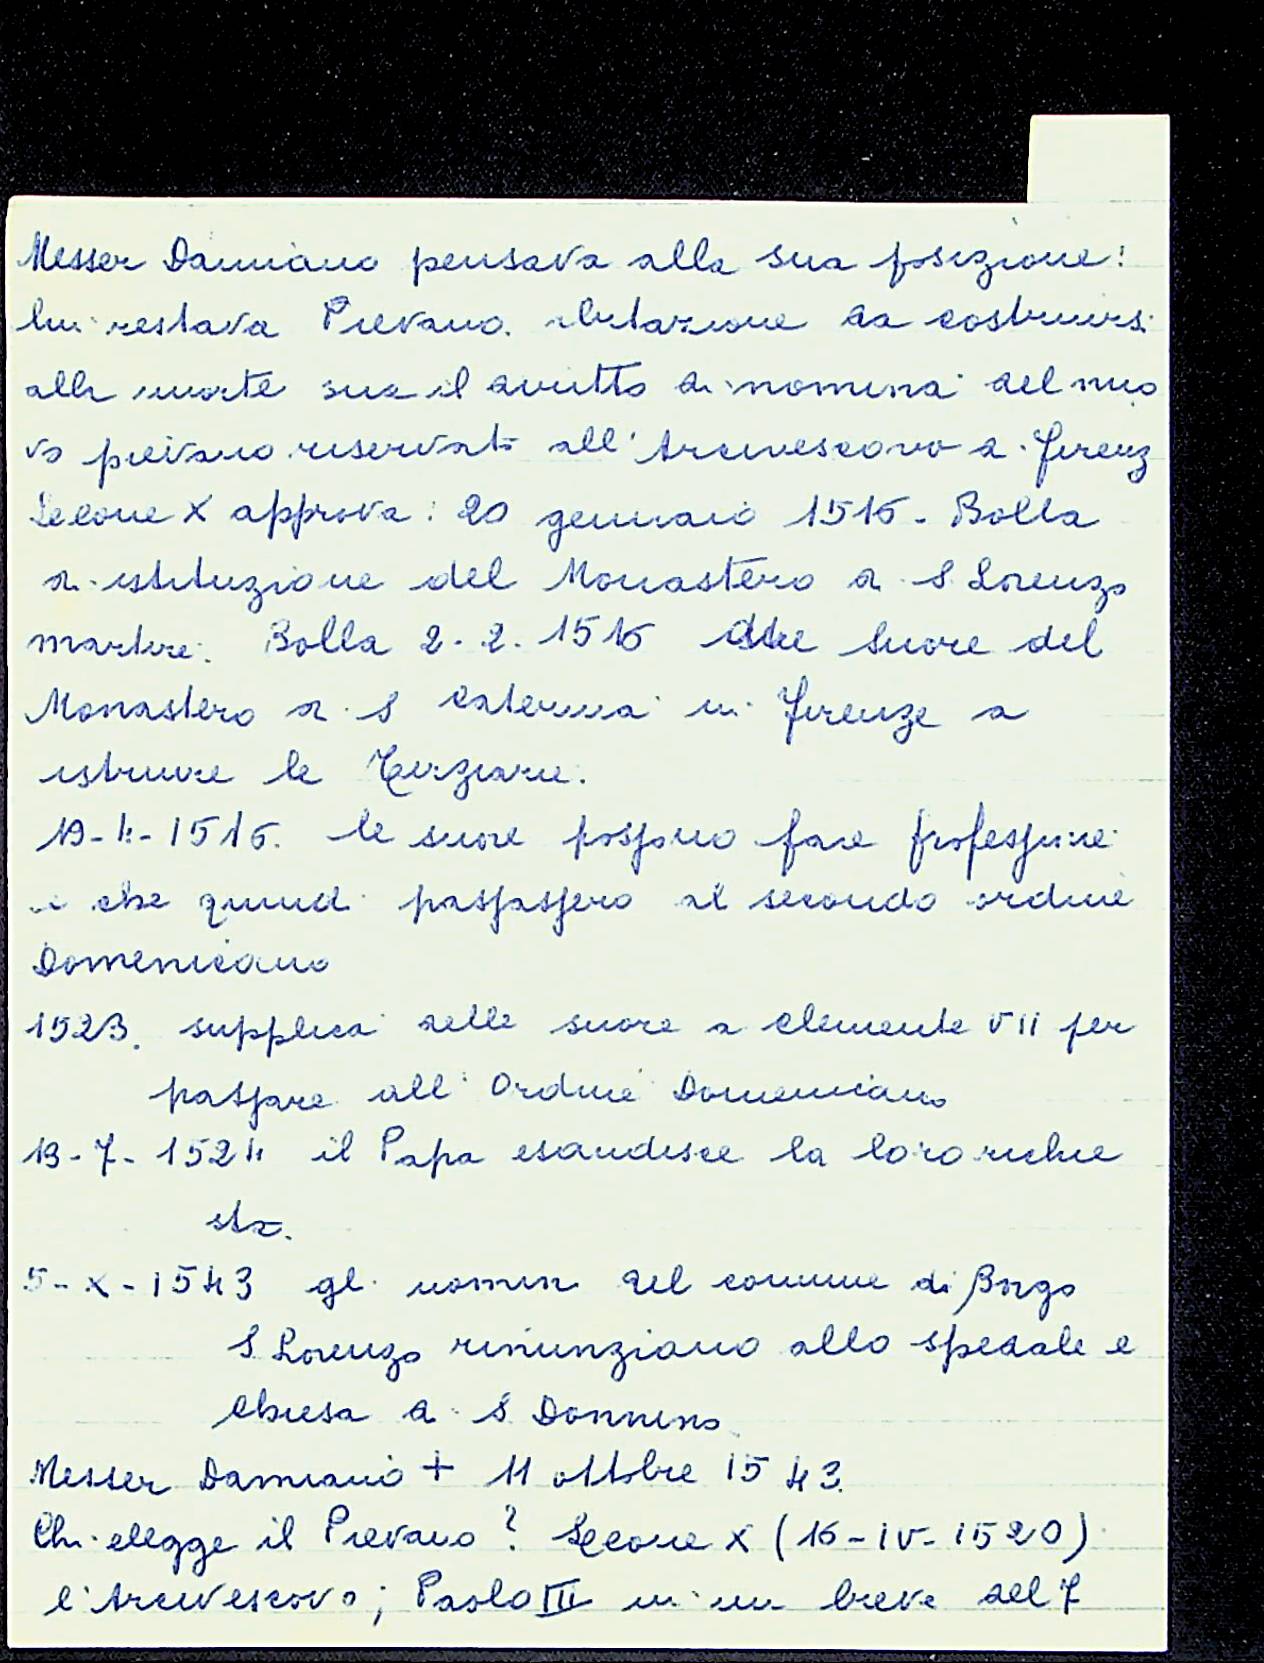 Messer Damiano pensava alla sua posizione:
lui restava Pievano. abitazione da costruirsi
alla morte sua il diritto di nomina del nuo
vo pievano riservato all'Arcivescovo di Firenz
Leone X approva: 20 gennaio 1516. Bolla
di istituzione del Monastero di S Lorenzo
martire. Bolla 2. 2. 1516 alle Suore del
Monastero di S Caterina in Firenze a
istruire le Terziarie.
19-4-1516. le suore possono fare professione
e che quindi passassero al secondo ordine
Domenicano
1523. supplica delle suore a Clemente VII per
passare all'Ordine Domenicano
13-7-1524 il Papa esaudisce la loro richie
sta.
5-X-1543 gli uomini del comune di Borgo
S Lorenzo rinunziano allo spedale e
Chiesa di S Donnino
Messer Damiano + 11 ottobre 1543.
Chi elegge il Pievano? Leone X (16-IV-1520)
l'Arcivescovo; Paolo III in un breve del 7